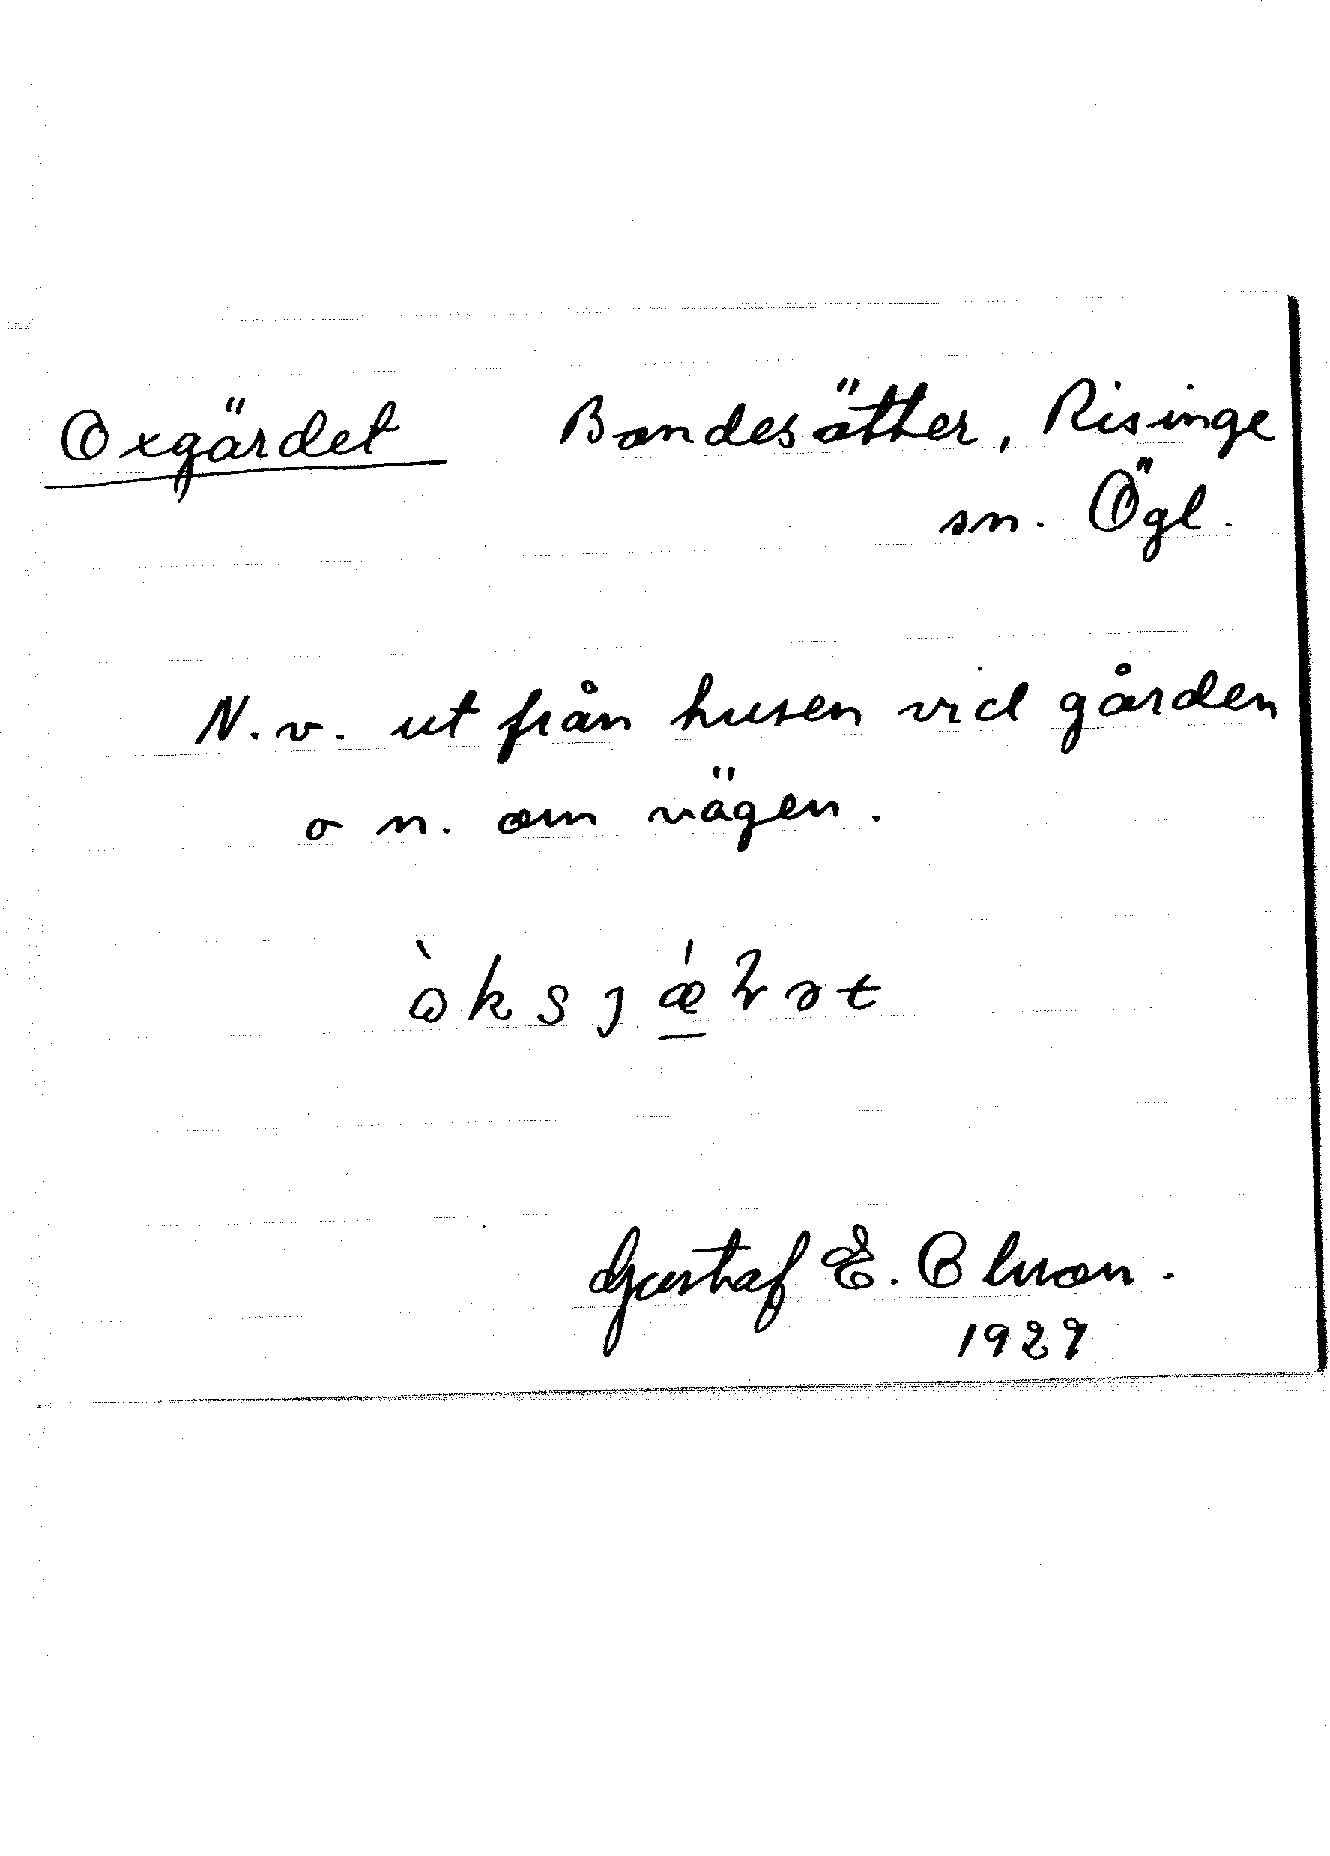 Oxgärdet Bondesätter, Risinge
sn. Ögl.
N.v. ut från husen vid gården
o n. om vägen.
Gustaf E. Olsson.
1929